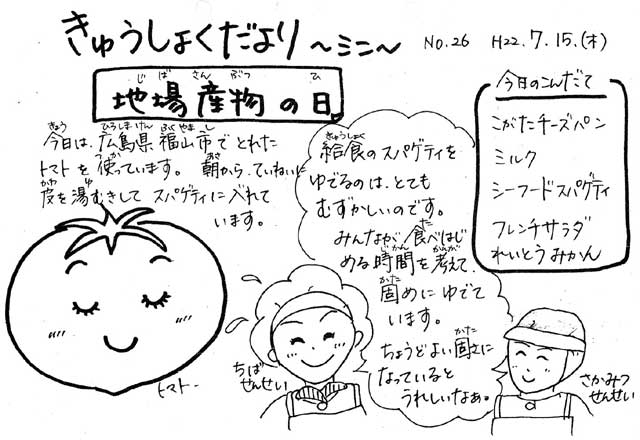 きゅうしょくだより ～ミニ～
No.26 H22.7.15.(木)
地場産物の日
今日は、広島県福山市でとれた
トマトを使っています。朝から、ていねいに
皮を湯むきして スパゲティに入れて
います。
今日のこんだて
こがたチーズパン
ミルク
シーフードスパゲティ
フレンチサラダ
れいとうみかん
給食のスパゲティを
ゆでるのは、とても
むずかしいのです。
みんなが、食べはじ
める時間を考えて、
固めにゆでて
います。
ちょうどよい固さに
なっていると
うれしいなぁ。
トマト
ちば
せんせい
さかみつ
せんせい